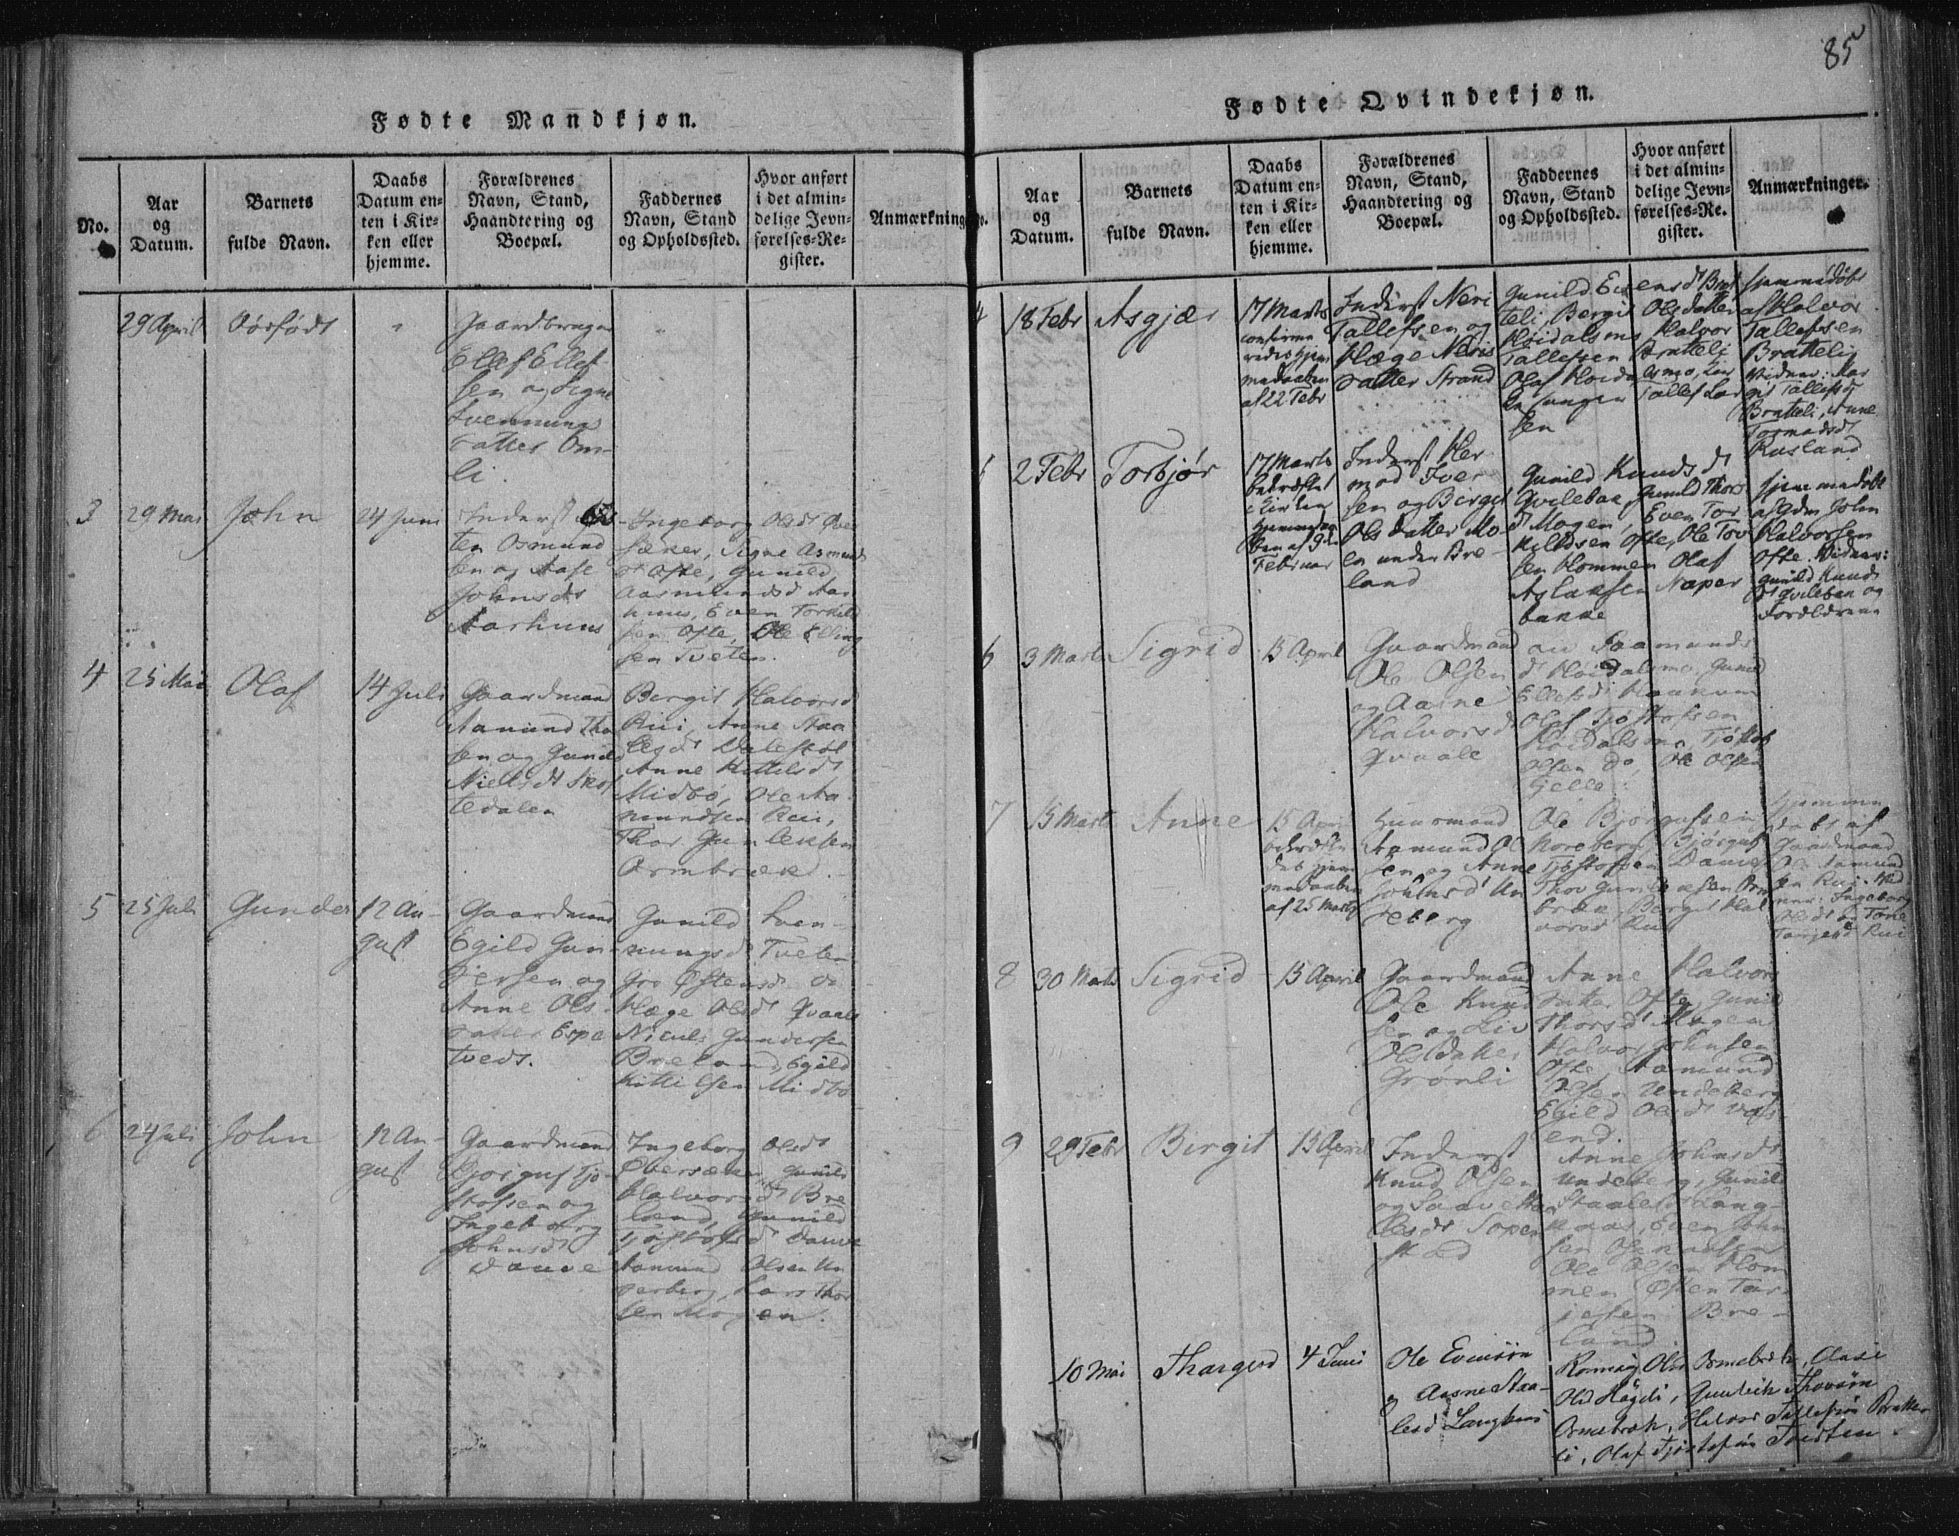 85
Fødte Mandkjøn.
No.
Aar
og
Datum.
Barnets
fulde Navn.
Daabs
Datum en-
ten i Kir-
ken eller
hjemme.
Forældrenes
Navn, Stand,
Haandtering og
Boepæl.
Faddernes
Navn, Stand
og Opholdssted.
Hvor anført
i det almin-
delige Jevn-
førelses-Re-
gister.
Anmærkning
29 April
Dørfødt
Gaardbruger
Olaf Ellef-
sen og Signe
Svennungs
datter Om-
li.
3
29 Mai
John
24 Juni
Inderst
ten Osmund
sen og Aase
Johnsdr
Aarhuus
Ingeborg Olsdt
Signe Asmunds
dt Ofte, Gunild
Aasmundsd Aar
huus, Even Torkild
sen Ofte, Ole Elling
sen Tveten.
4
25 Mai
Olaf
14 Juli
Gaardmand
Aamund Tho
sen og Gunild
Nielsdt Skof
tedalen
Bergit Halvorsd
Rui, Anne Aaa
Anne Kittilsdt
Midbø, Ole Aa
mundsen Rui,
Thor Gunleksen
Ormbræk.
5
25 Juli
Gunder
12 Au-
gust
Gaardmand
Egild Gun-
dersen og
Anne Ols
datter Espe
tveds.
Gunild Sven-
nungsd Tveten
Gro Østensd do
Hæge Olsdt Qvaale
Niculs Gundersen
Breland, Egild
Kittilsen Midbø
6
24 Juli
John
12 Au-
gust
Gaardmand
Bjorguf Tjo-
stofsen og
Ingeborg
Johnsdt
Dauve
Ingeborg Olsdt
Gunild
Halvorsdt Bre
land, Gunild
Tjostofsd Dauve
Aamund Olsen Un
deberg, Lars Thor
sen Mogen.
Fødte Qvindekjøn.
No.
Aar
og
Datum.
Barnets
fulde Navn.
Daabs
Datum en-
ten i Kir-
ken eller
hjemme.
Forældrenes
Navn, Stand,
Haandtering og
Boepæl.
Faddernes
Navn, Stand
og Opholdssted.
Hvor anført
i det almin-
delige Jevn-
førelses-Re-
gister.
Anmærkninger.
4
18 Febr
Asgjær
17 Marts
confirme
redes hjem
medaaben
af 22 Febr
Inderst Neri
Tallefsen og
Hæge Neris
datter Strand
Gunild Evensdt Brat
teli, Bergit Olsdatter
Høidalsmo, Halvor
Tallefsen Bratteli
Olaf Høidalsmo,
Tallef Lar
sen
hjemmedøbt
af Halvor
Tallefsen
Bratteli
Vidner: Mar
git Tallefsd
Bratteli, Anne
Tormodsdt
Rusland
2 Febr
Torbjør
17 Marts
bekræftet
i Kirken
hjemmedaa
ben af 9de
Februar
Inderst Her
mod Iver
sen og Bergit
Olsdatter Mo
en under Bre-
land
Gunild Knudsdt
Qvileban, Gunild Thors
dt Mogen, Even Tor
kildsen Ofte, Ole Tov
sen Hommen Olaf
Aslaksen Naper
banke
hjemmedøbt
af Gdm John
Halvorsen
Ofte. Vidner:
Gunild Knuds
dt Qvileban og
Forældrene
6
3 Marts
Sigrid
15 April
Gaardmand
Ole Olsen
og Aasne
Halvorsdt
Qvaale
Aamunds
dt Høidalsmo, Gunild
Ellefsdt Haakum
Olaf Tjostofsen
Høidalsmo, Tjostof
Olsen do, Ole Olsen
Gjelle.
7
15 Marts
Anne
15 April
bekræfte
det hjem
medaaben
af 25 Marts
Huusmand
Aamund Ol
sen og Anne
Johnsd Un
deberg
Ole Bjorgufsen
Noreberg, Bjørguf
Tjostofsen Dauve
Thor Gunleksen Orm
bræk, Bergit Hal
vorsd Rui
hjemme
døbt af
Gaardmand
Ole Aamund
sen Rui. Vid
ner: Ingeborg
Olsdt og Tone
Torgersd Rui
8
30 Marts
Sigrid
15 April
Gaardmand
Ole Knud
sen og Liv
Olsdatter
Grønli
Anne Halvors
datter Ofte, Gunild
Thorsdt Mogen
Halvor Johnsen
Ofte, Aamund
Olsen Undeberg
Egild Olsdt Vaas
end.
9
29 Febr
Birgit
15 April
Inderst
Knud Olsen
og Saave Sta
lesdt Sopen
stad
Anne Johnsdt
Undeberg, Gunild
Staalesd Lang-
huus, Even John
sen Ofte
Ole Olsen Hom
men Østen Tar-
jesen Bre-
land
10 Mai
Thargerd
4 Juni
Ole Evensøn
& Aasne Staa-
lesd Langhuus
Ronnaug Olsd Ormebræk, Aase
Olsd Høgdi, Gunleik Thorsøn
Ormebræk, Halvor Tallefsøn Bratte
li, Olaf Tjøstofsøn Tveiten.